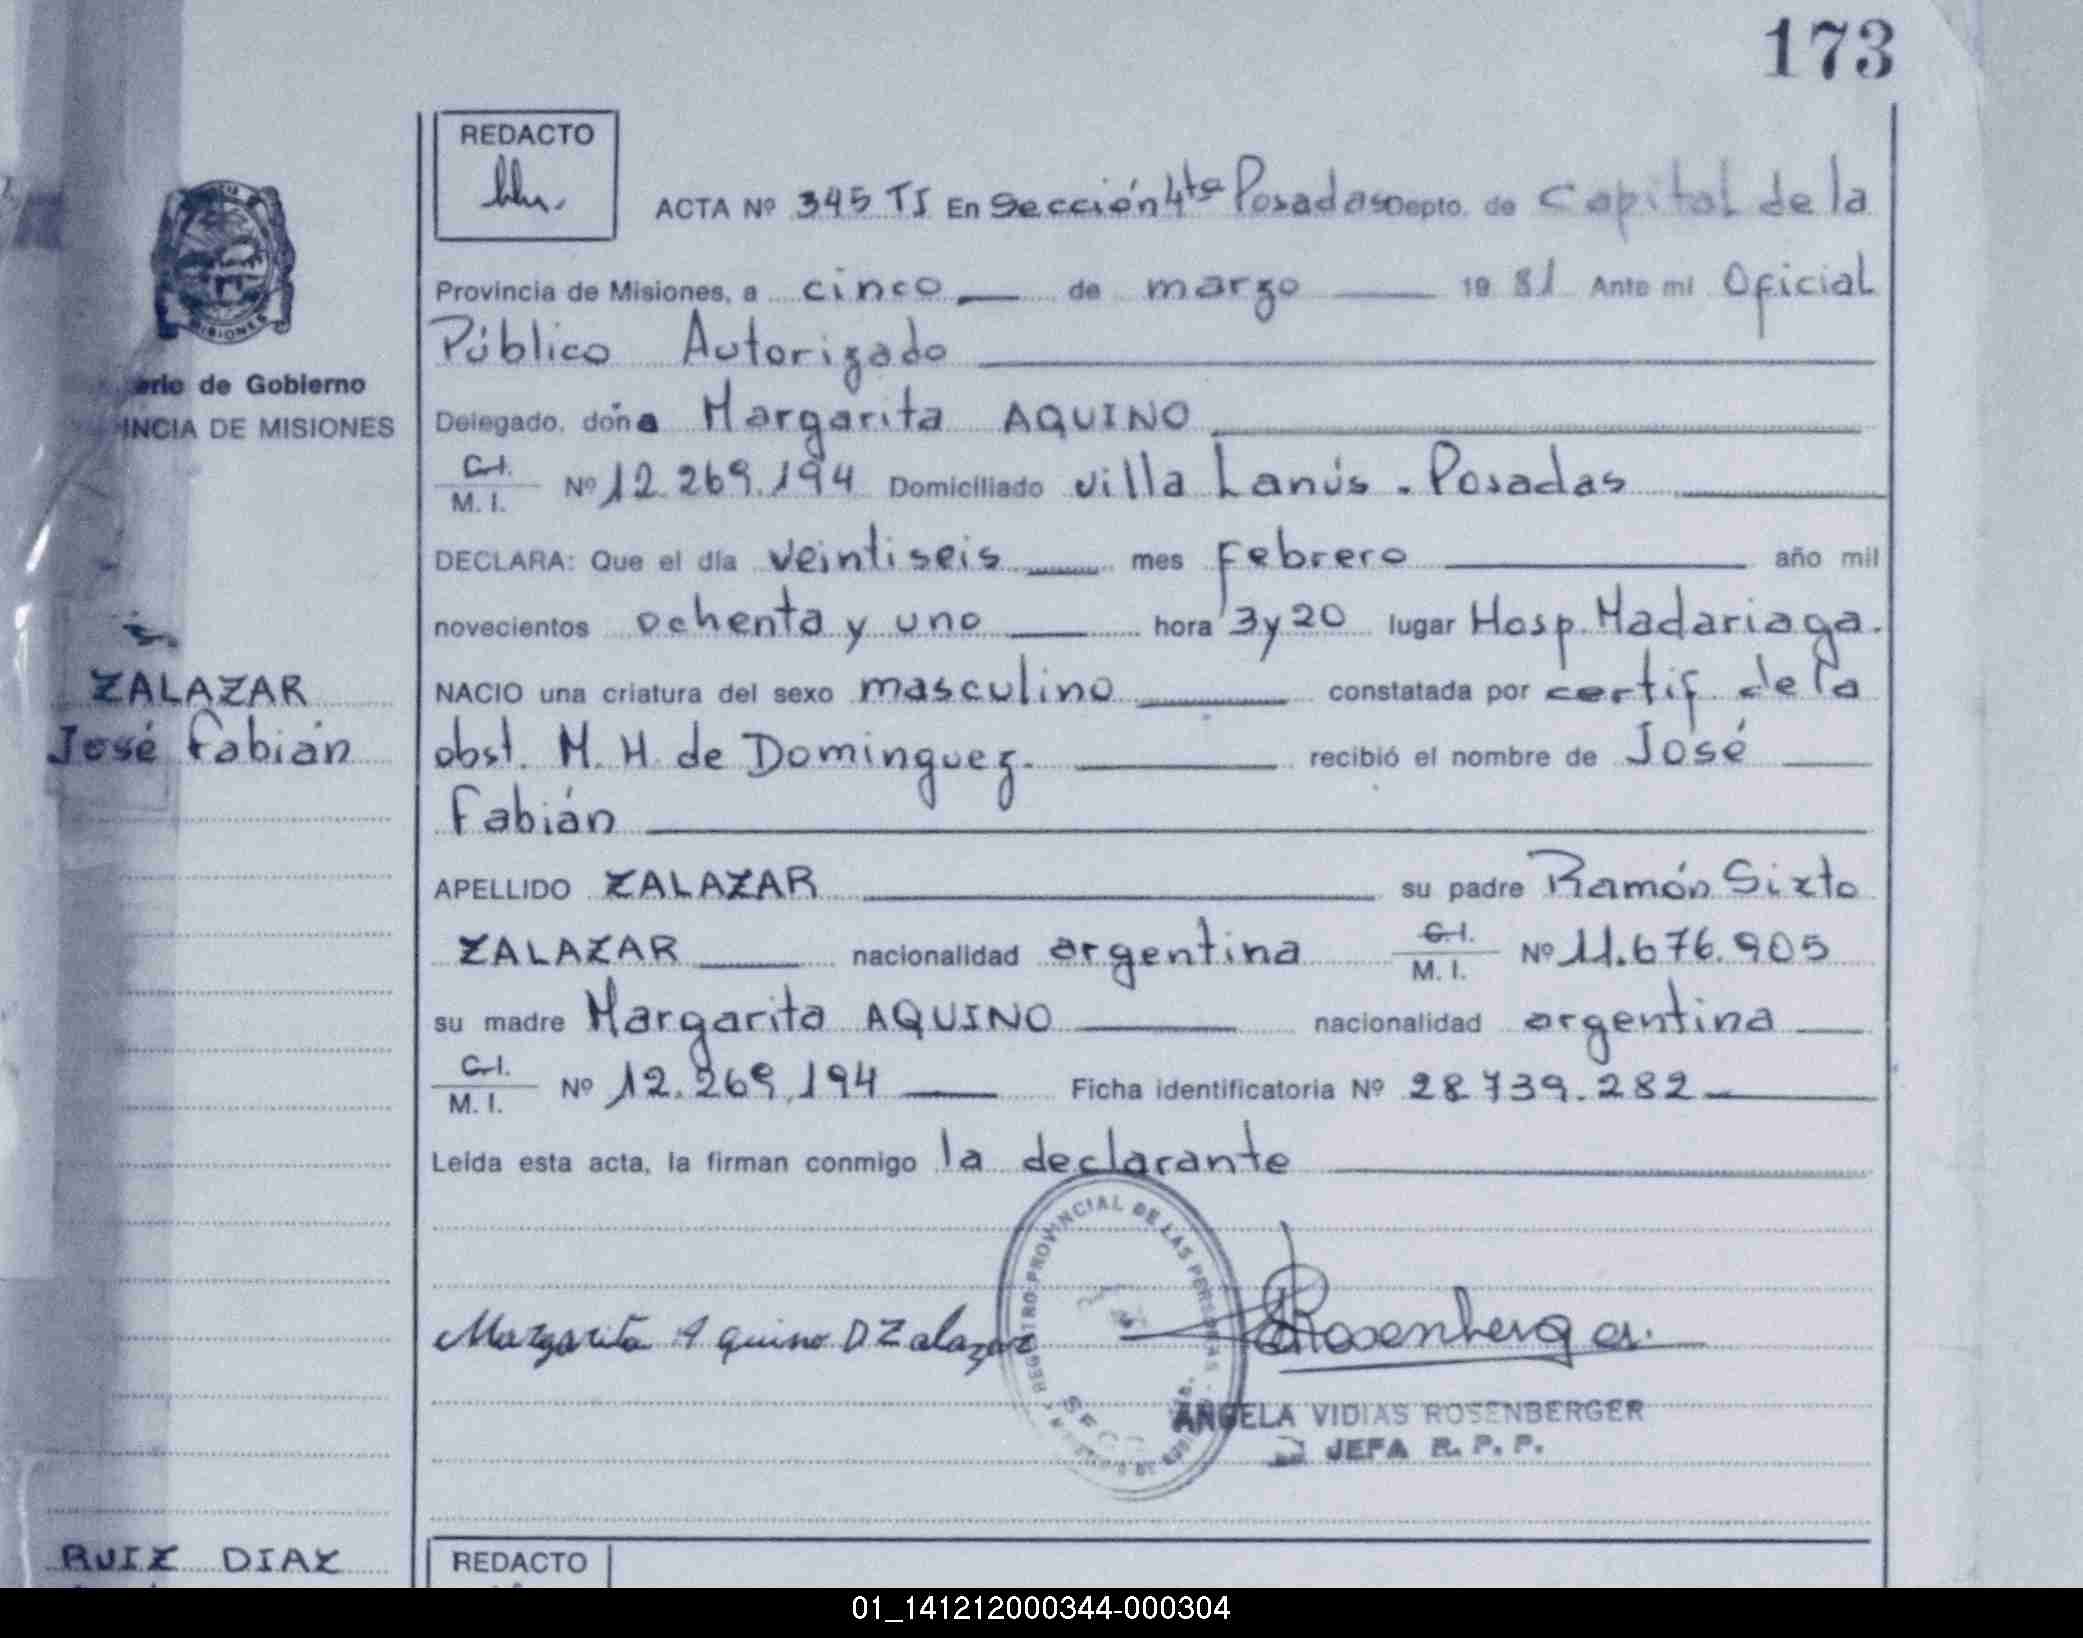 173
REDACTO
ACTA Nº 345 TI En Sección 4ta Posadas Depto. de Capital de la
Provincia de Misiones, a cinco de marzo 19 81 Ante mi Oficial
Público Autorizado
erio de Gobierno
INCIA DE MISIONES
Delegado, doña Margarita AQUINO
C.I.
M. I. Nº 12.269.194 Domiciliado Villa Lanús - Posadas
DECLARA: Que el día veintiseis mes febrero año mil
novecientos ochenta y uno hora 3 y 20 lugar Hosp. Madariaga.
ZALAZAR
José Fabián
NACIO una criatura del sexo masculino constatada por certif. de la
obst. M. H. de Dominguez. recibió el nombre de José
Fabián
APELLIDO ZALAZAR su padre Ramón Sixto
ZALAZAR nacionalidad argentina C.I.
M. I. Nº 11.676.905
su madre Margarita AQUINO nacionalidad argentina
C.I.
M. I. Nº 12.269.194 Ficha identificatoria Nº 28.739.282
Leída esta acta, la firman conmigo la declarante
REGISTRO PROVINCIAL DE LAS PERSONAS
Margarita Aquino D Zalazar
Rosenberger
ANGELA VIDIAS ROSENBERGER
JEFA R. P. P.
RUIZ DIAZ
REDACTO
01_141212000344-000304